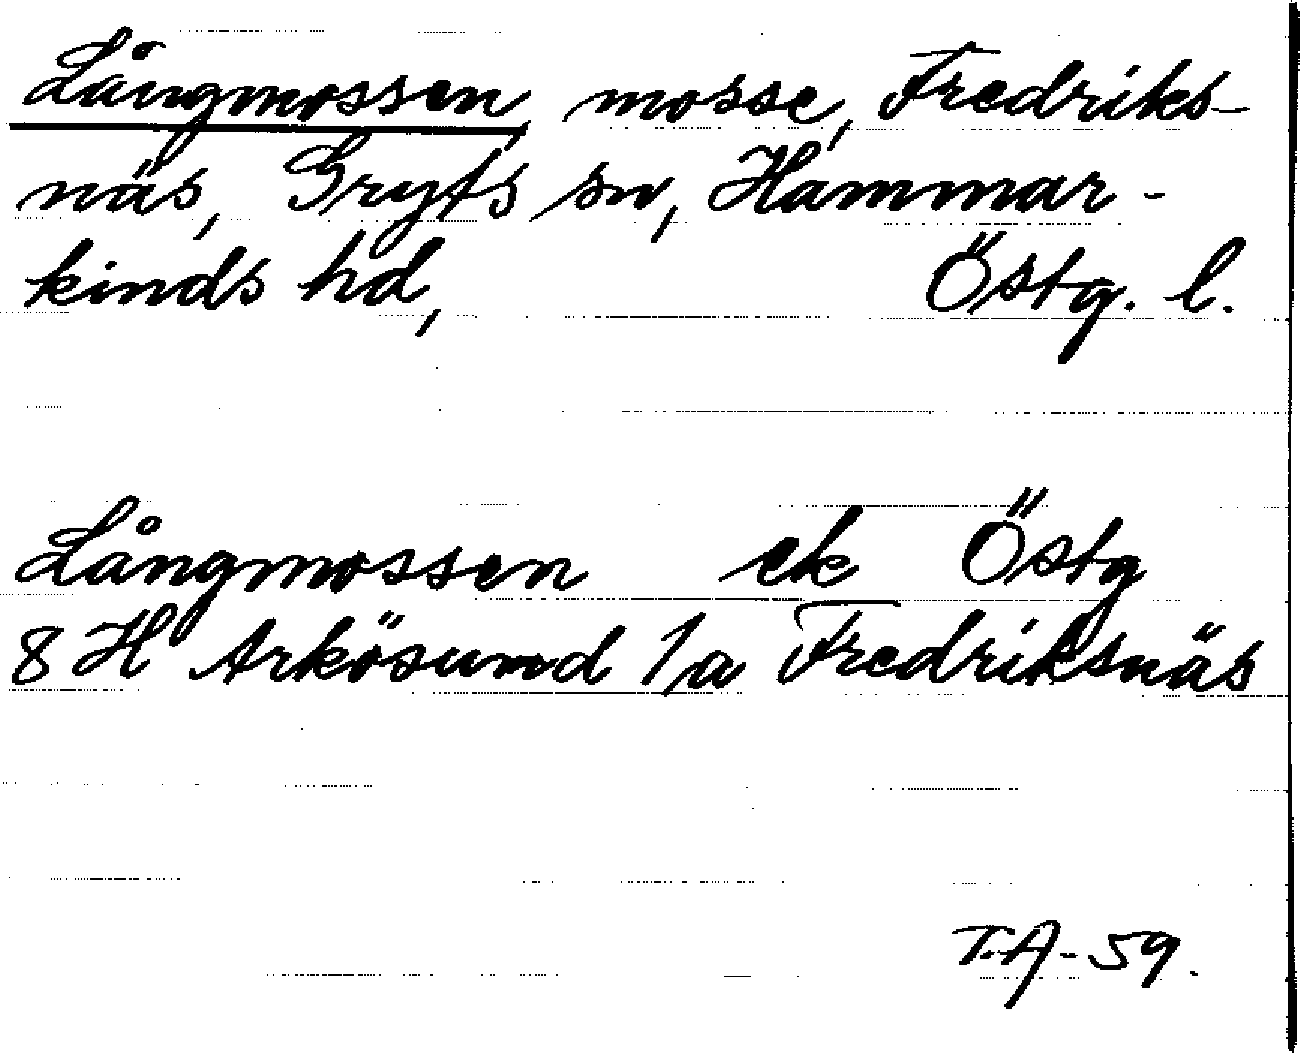 Långmossen, mosse, Fredriks-
näs, Gryts sn, Hammar-
kinds hd, Östg. l.
Långmossen ek Östg
8 H Arkösund 1/a Fredriksnäs
T.A-59.